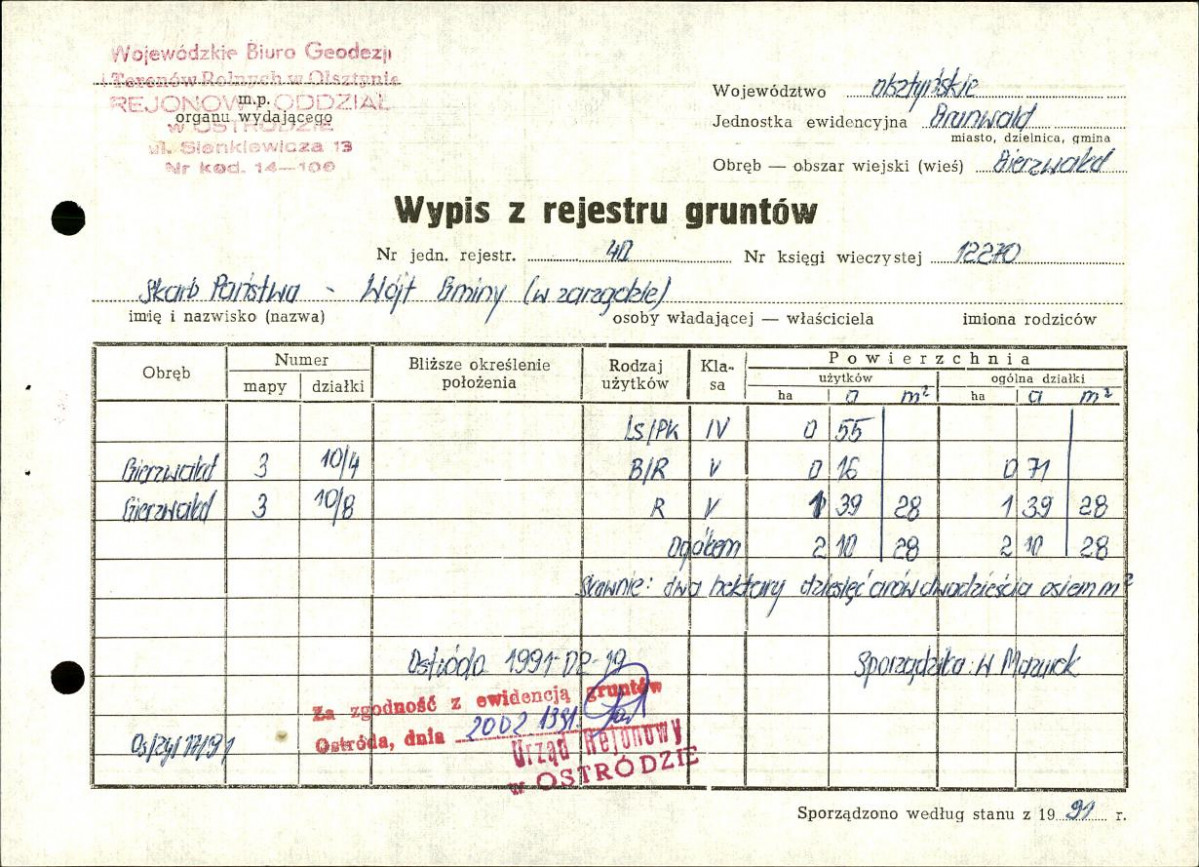 Wojewódzkie Biuro Geodezji
i Terenów Rolnych w Olsztynie
REJONOWY ODDZIAŁ
m.p.
organu wydającego
w OSTRÓDZIE
ul. Sienkiewicza 13
Nr kod. 14—100
Województwo olsztyńskie
Jednostka ewidencyjna Grunwald
miasto, dzielnica, gmina
Obręb — obszar wiejski (wieś) Gierzwałd
Wypis z rejestru gruntów
Nr jedn. rejestr. 40 Nr księgi wieczystej 12270
Skarb Państwa - Wójt Gminy (w zarządzie)
imię i nazwisko (nazwa) osoby władającej — właściciela imiona rodziców
Obręb Numer Bliższe określenie położenia Rodzaj użytków Kla-sa Powierzchnia
mapy działki użytków ogólna działki
ha a m² ha a m²
Ls/Pk IV 0 55
Gierzwałd 3 10/4 B/R V 0 16 0 71
Gierzwałd 3 10/8 R V 1 39 28 1 39 28
Ogółem 2 10 28 2 10 28
Słownie: dwa hektary dziesięć arów dwadzieścia osiem m²
Ostróda 1991-02-19 Sporządziła: W Mazurek
Za zgodność z ewidencją gruntów
Ostróda, dnia 2002 1991.
Urząd Rejonowy
w OSTRÓDZIE
Os/zg/17/91
Sporządzono według stanu z 1991 r.